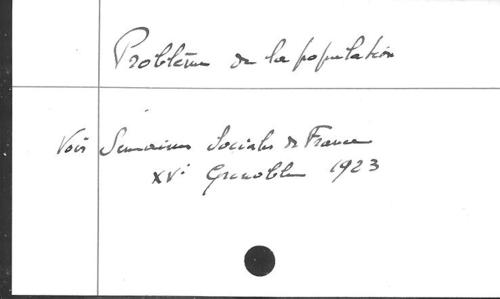 Problème de la population
Voir Semaines Sociales de France
XVe Grenoble 1923